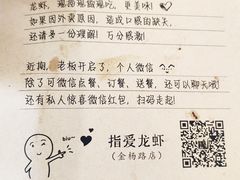 如果因外卖原因，造成口感的缺失，
还请多一份理解！万分感激！
近期，老板开启了，个人微信
除了可微信点餐、订餐、送餐，还可以聊天哦！
还有私人惊喜微信红包，扫码走起！
biu~
指爱龙虾
（金杨路店）